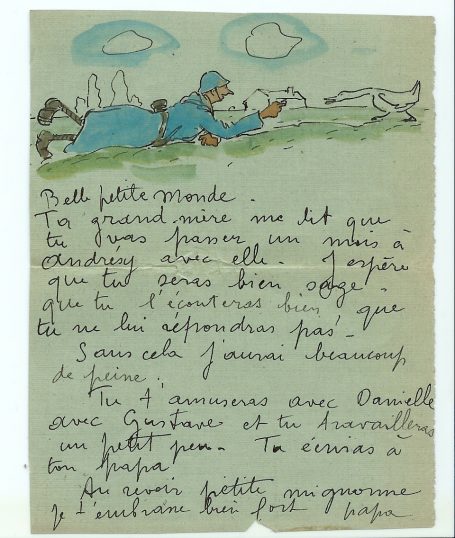 Belle petite monde.
Ta grand-mère me dit que
tu vas passer un mois à
Andrésy avec elle. J'espère
que tu seras bien sage.
que tu l'écouteras bien, que
tu ne lui répondras pas.
Sans cela j'aurai beaucoup
de peine.
Tu t'amuseras avec Danielle
avec Gustave et tu travailleras
un petit peu. Tu écriras à
ton papa
Au revoir petite mignonne
je t'embrasse bien fort papa